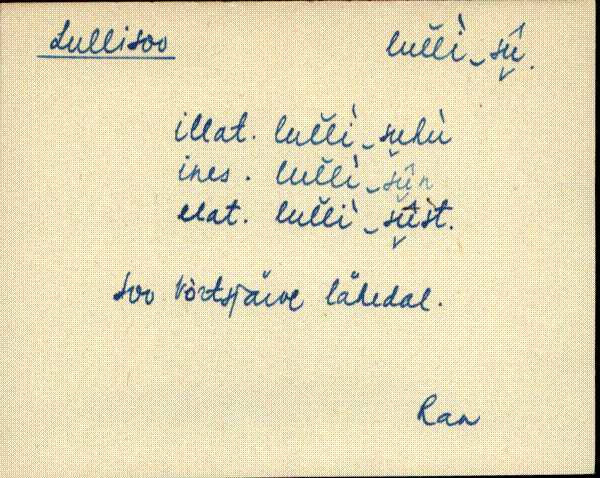 Lullisoo lul̆l̆ì‿sû̬.
illat. lul̆l̆ì‿suhù
ines. lul̆l̆ì‿sû̬n
elat. lul̆l̆ì‿sû̬st.
soo Võrtsjärve lähedal.
Ran